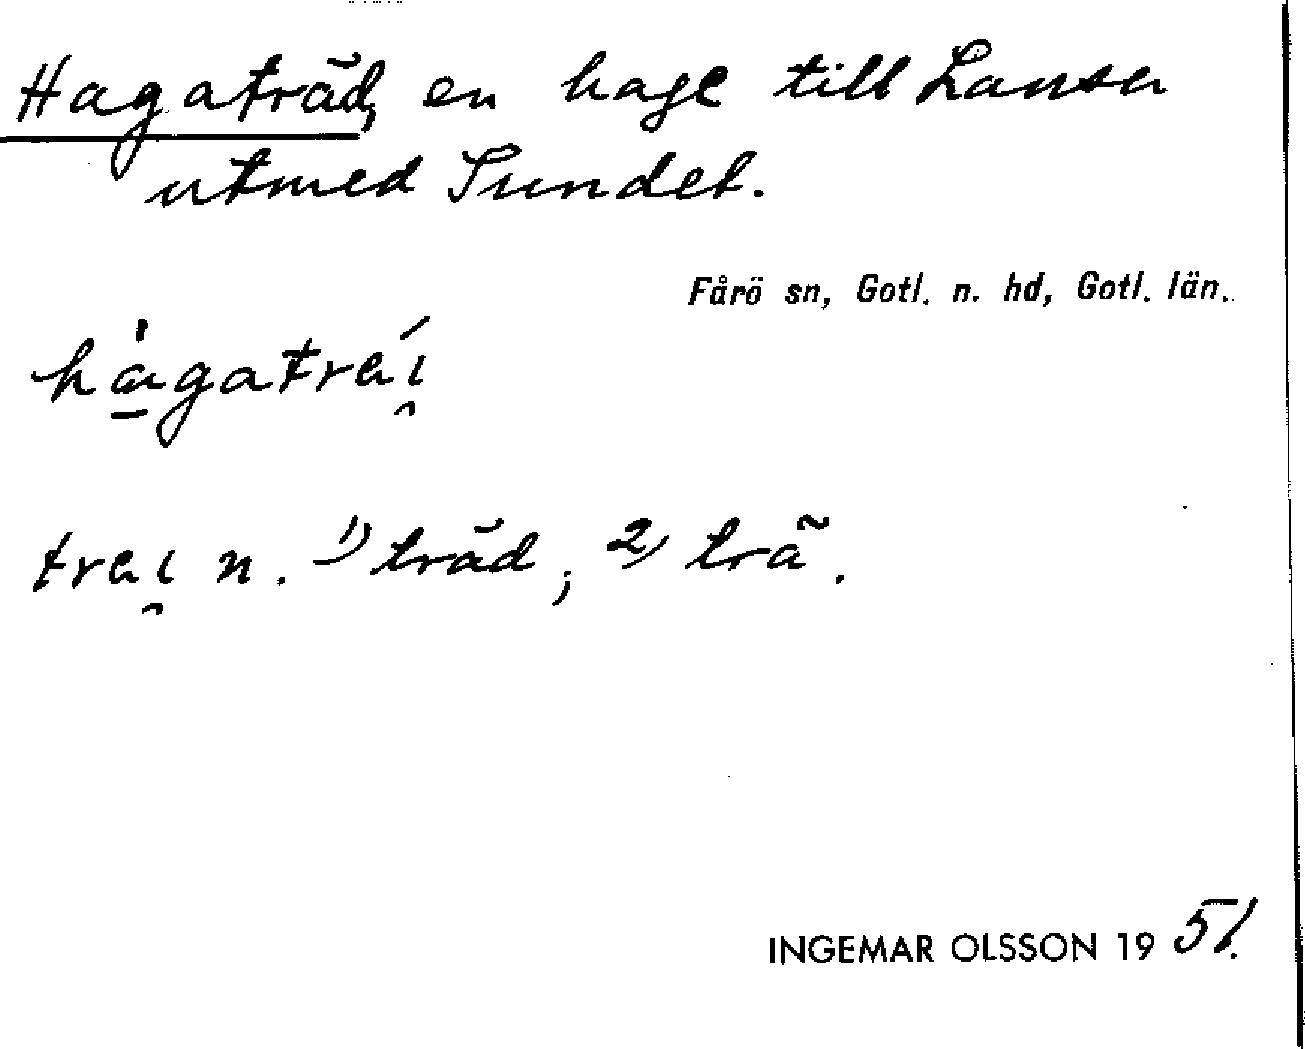 Hagaträd, en hage till Lansa
utmed Sundet.
Fårö sn, Gotl. n. hd, Gotl. län.
hagatrai
trai n. 1) träd; 2) trä.
INGEMAR OLSSON 1951.